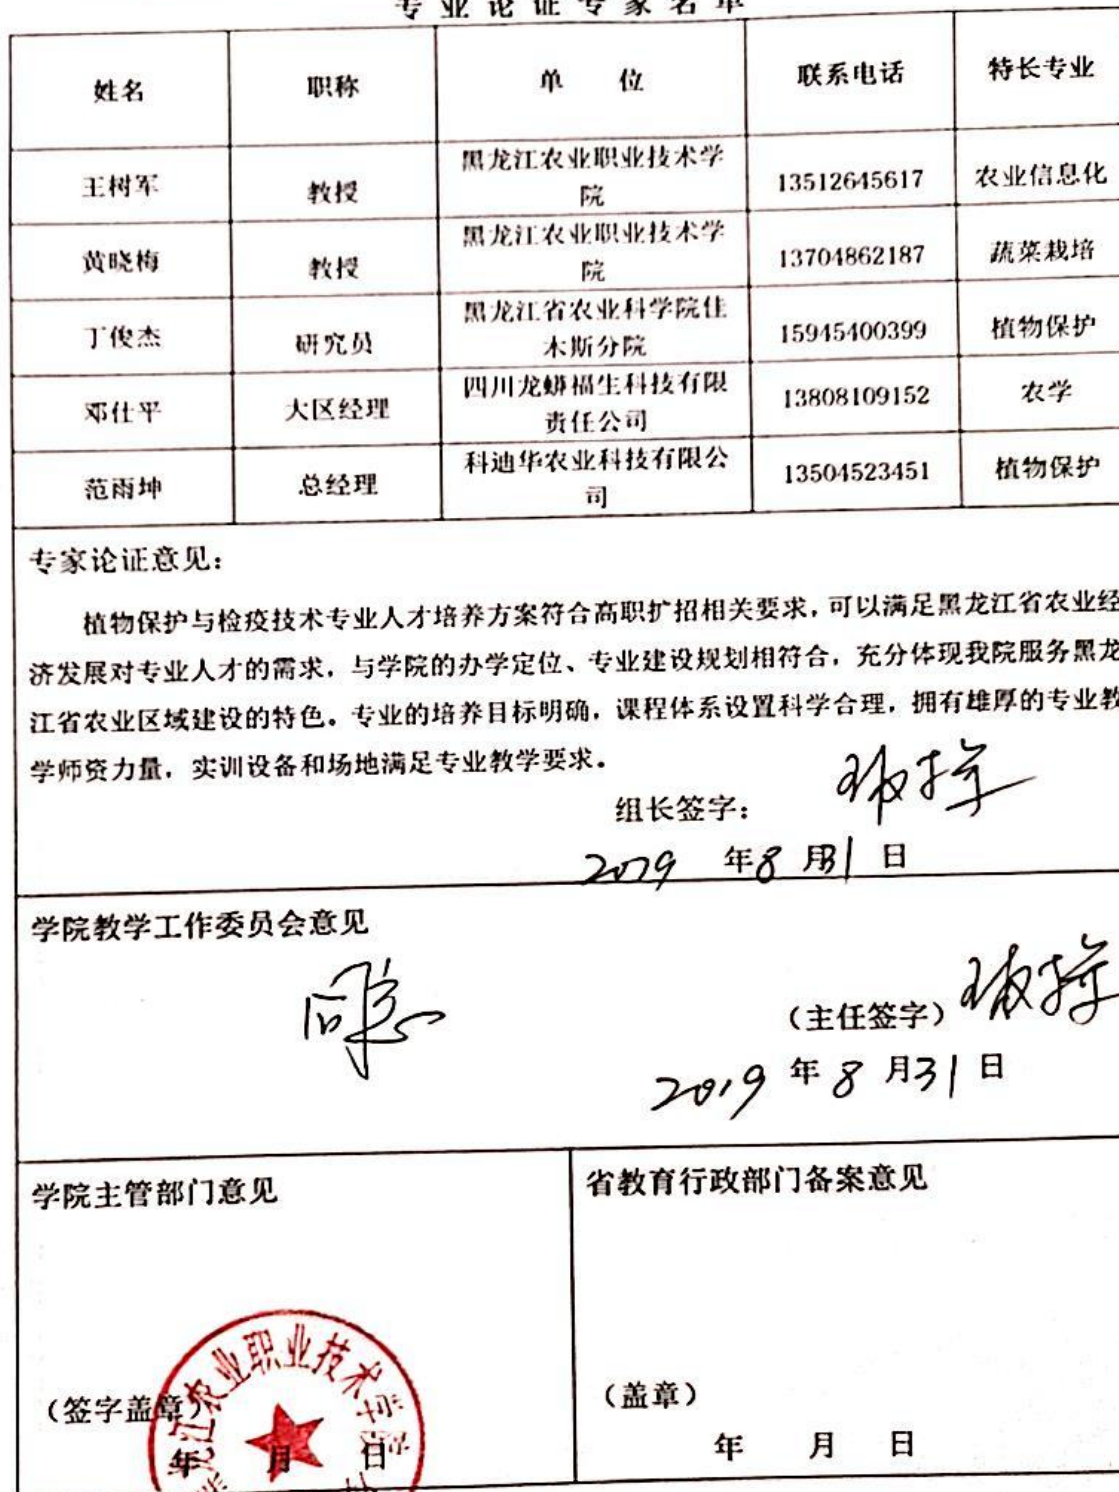 专业论证专家名单
姓名 职称 单 位 联系电话 特长专业
王树军 教授 黑龙江农业职业技术学
院 13512645617 农业信息化
黄晓梅 教授 黑龙江农业职业技术学
院 13704862187 蔬菜栽培
丁俊杰 研究员 黑龙江省农业科学院佳
木斯分院 15945400399 植物保护
邓仕平 大区经理 四川龙蟒福生科技有限
责任公司 13808109152 农学
范雨坤 总经理 科迪华农业科技有限公
司 13504523451 植物保护
专家论证意见：
植物保护与检疫技术专业人才培养方案符合高职扩招相关要求，可以满足黑龙江省农业经
济发展对专业人才的需求，与学院的办学定位、专业建设规划相符合，充分体现我院服务黑龙
江省农业区域建设的特色。专业的培养目标明确，课程体系设置科学合理，拥有雄厚的专业教
学师资力量，实训设备和场地满足专业教学要求。
组长签字：
2019 年 8 月 31 日
学院教学工作委员会意见
同意
（主任签字）
2019 年 8 月 31 日
学院主管部门意见
（签字盖章）
年 月 日
江农业职业技术学院
省教育行政部门备案意见
（盖章）
年 月 日